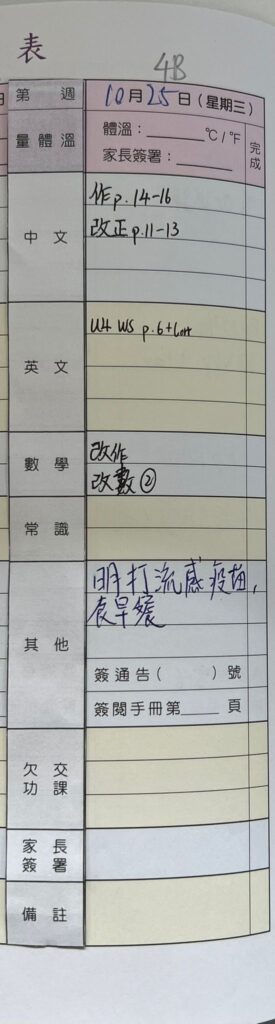 表
4B
第 週 10月25日(星期三)
量體溫 體溫:______℃/℉ 完成
家長簽署:______
中文 作p.14-16
改正p.11-13
英文 U4 WS p.6+Corr
數學 改作
改數②
常識
其他 明打流感疫苗,
簽通告( )號
簽閱手冊第____頁
欠交功課
家長簽署
備註